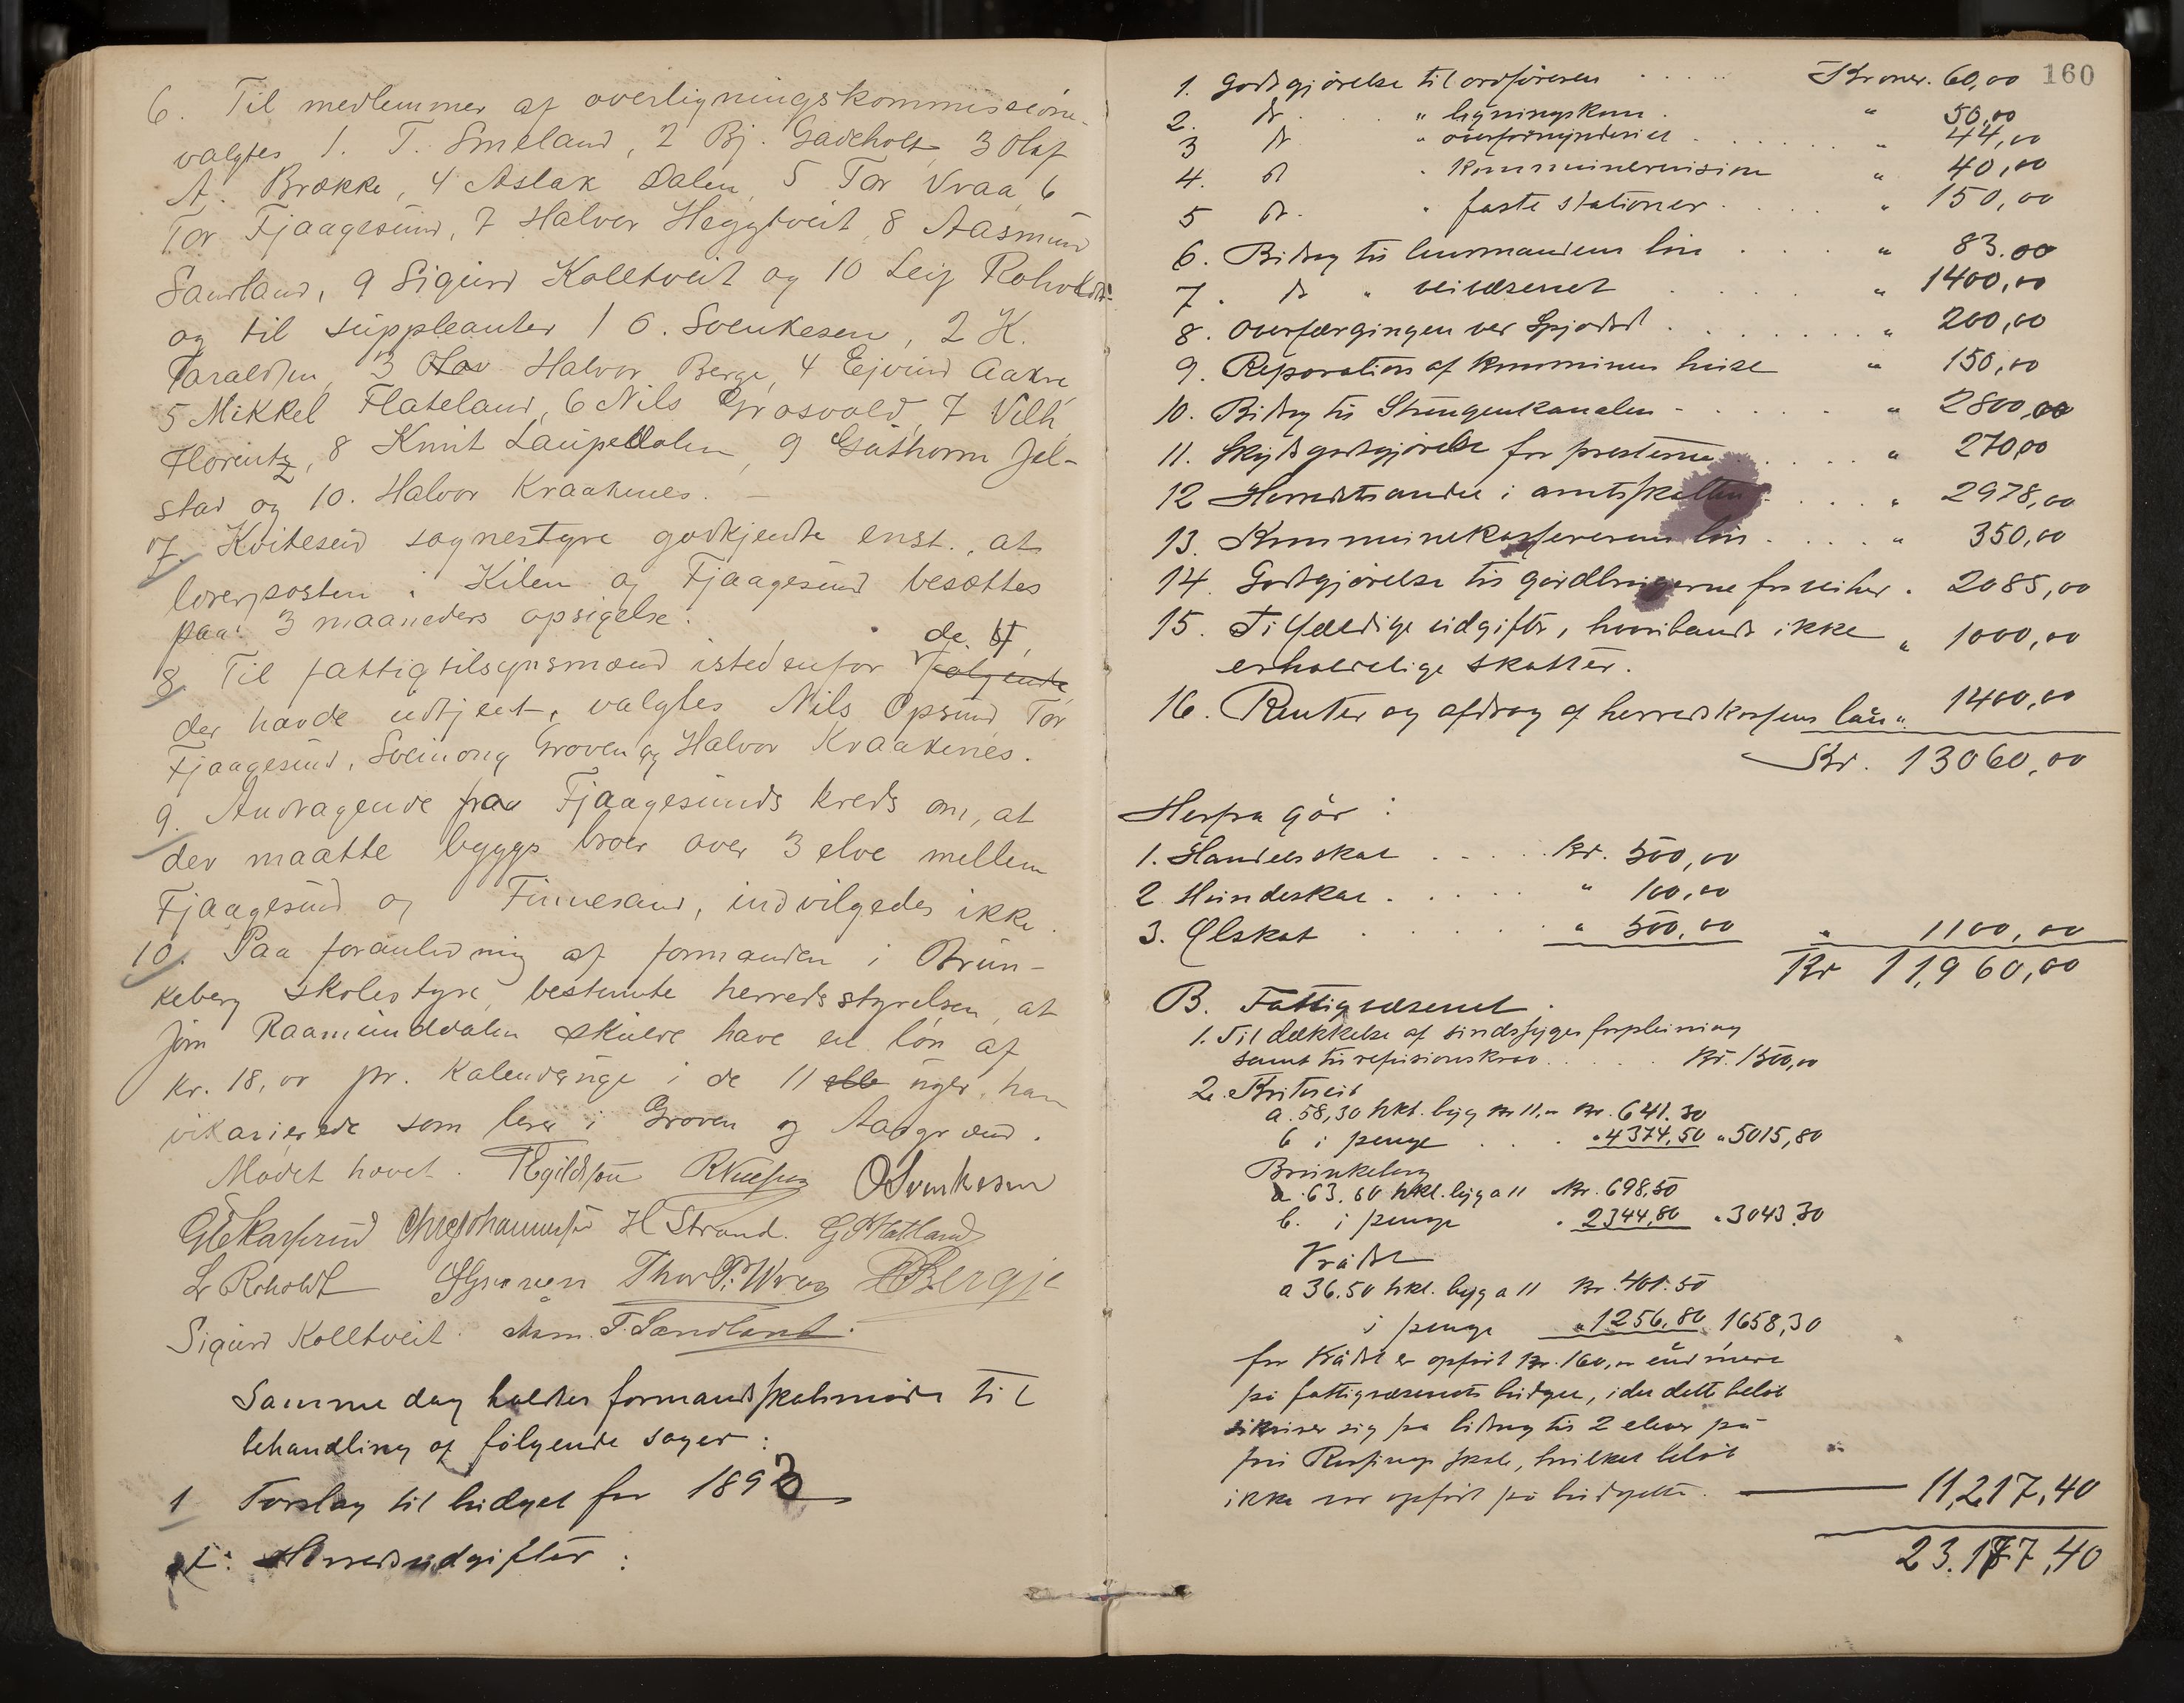 6. Til medlemmer af overligningskommissione-
valgtes 1. T. Smeland, 2 Bj. Gadeholt 3 Olaf
A. Brække, 4 Aslak Dalen, 5 Tor Vraa, 6
Tor Fjaagesund, 7 Halvor Heggtveit, 8 Aasmund
Sandland, 9 Sigurd Kolltveit og 10 Leif Roholdt
og til suppleanter 1 O. Svenkesen, 2 K.
Taraldsen, 3 Halvor Berge, 4 Ejvind Aakre,
5 Mikkel Flateland, 6 Nils Grosvold, 7 Vilh.
Florentz, 8 Knut Laupedalen, 9 Guthorm Jel-
stad og 10. Halvor Kraakenes. –
7. Kviteseid sognestyre godkjendte enst., at
lærerposten i Kilen og Fjaagesund besættes
paa 3 maaneders opsigelse.
8. Til fattigtilsynsmænd istedenfor følgende de 4,
der havde udtjent, valgtes Nils Opsund, Tor
Fjaagesund, Sveinong Groven og Halvor Kraakenes.
9. Andragende fra Fjaagesunds kreds om, at
der maatte bygges broer over 3 elve mellem
Fjaagesund og Finnesand, indvilgedes ikke.
10. Paa foranledning af formanden i Brun-
keberg skolestyre, bestemte herredsstyrelsen, at
Jøn Raamunddalen skulde have en løn af
kr. 18,00 pr. Kalenderuge i de 11 uger, han
vikarierede som lærer i Groven og Aasgrænd.
Mødet hævet. TEgildson OSvenkesen
H Strand. G Hatland
L Roholdt Thor P. Wraa Bergje
Sigurd Kolltveit. Aasm. T. Sandland.
Samme dag holdtes formandskabsmøde til
behandling af følgende sager:
1 Forslag til budget for 1893
A. Herredsudgifter:
160
1. Godtgjørelse til ordføreren . . . . . Kroner. 60,00
2. dt . . " ligningskom. " 50,00
3 dt " overformynderiet . . . . . " 44,00
4. dt " kommunerevision " 40,00
5 dt. " faste stationer . . . . " 150,00
6. Bidrag til lensmandens løn . . . . " 83.00
7. dt " veivæsenet . . . . " 1400,00
8. Overfærgingen ved Spjodsd . . . . . . " 200,00
9. Reparation af kommunens huse " 150,00
10. Bidrag til Strengenkanalen - . . . . " 2800,00
11. Skydsgodtgjørelse for presterne . . . . . " 270,00
12 Herredets andel i amtsskatten . . . . " 2978,00
13. Kommunekassererens løn . . . . " 350,00
14. Godtgjørelse til gårdbrugerne for veiher . 2085,00
15. Tilfældige udgifter, hvoriblandt ikke " 1000,00
erholdelige skatter.
16. Renter og afdrag af herredskassens lån " 1400,00
Kr. 13060,00
Herfra går:
1. Handelsskat . . . . . Kr. 500,00
2 Hundeskat . . . . . " 100,00
3. Ølskat . . . . . " 500,00 " 1100,00
Kr 11,960,00
B. Fattigvæsenet.
1. Til dækkelse af sindssyges forpleining
samt til refusionskrav . . . . Kr. 1500,00
2. Kviteseid
a. 58,30 hkl. byg kr 11,- Kr. 641.30
b i penge . . . " 4374,50 " 5015,80
Brunkeberg
a. 63.50 hkl. byg a 11 Kr. 698,50
b. i penge " 2344,80 " 3043.30
Vrådal
a 36.50 hkl. byg a 11 Kr. 401.50
i penge " 1256,80 1658,30
for Vrådal er opført kr. 160,00 end mere
på fattigvæsenets budget, idet dette beløb
sikrer sig på bidrag til 2 elever på
fru Rosings skole, hvilket beløb
ikke var opført på budgettet. 11,217,40
23.177,40